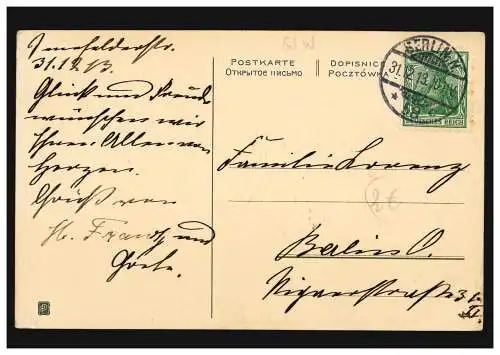 31.12.13.
Glück und Freude
wünschen wir
Ihnen Allen von
Herzen.
Gruß von
Frantz und
POSTKARTE
ОТКРЫТОЕ ПИСЬМО
DOPISNICE
POCZTÓWKA
BERLIN
31.12.13
DEUTSCHES REICH
Familie Lorenz
2€
Berlin O.